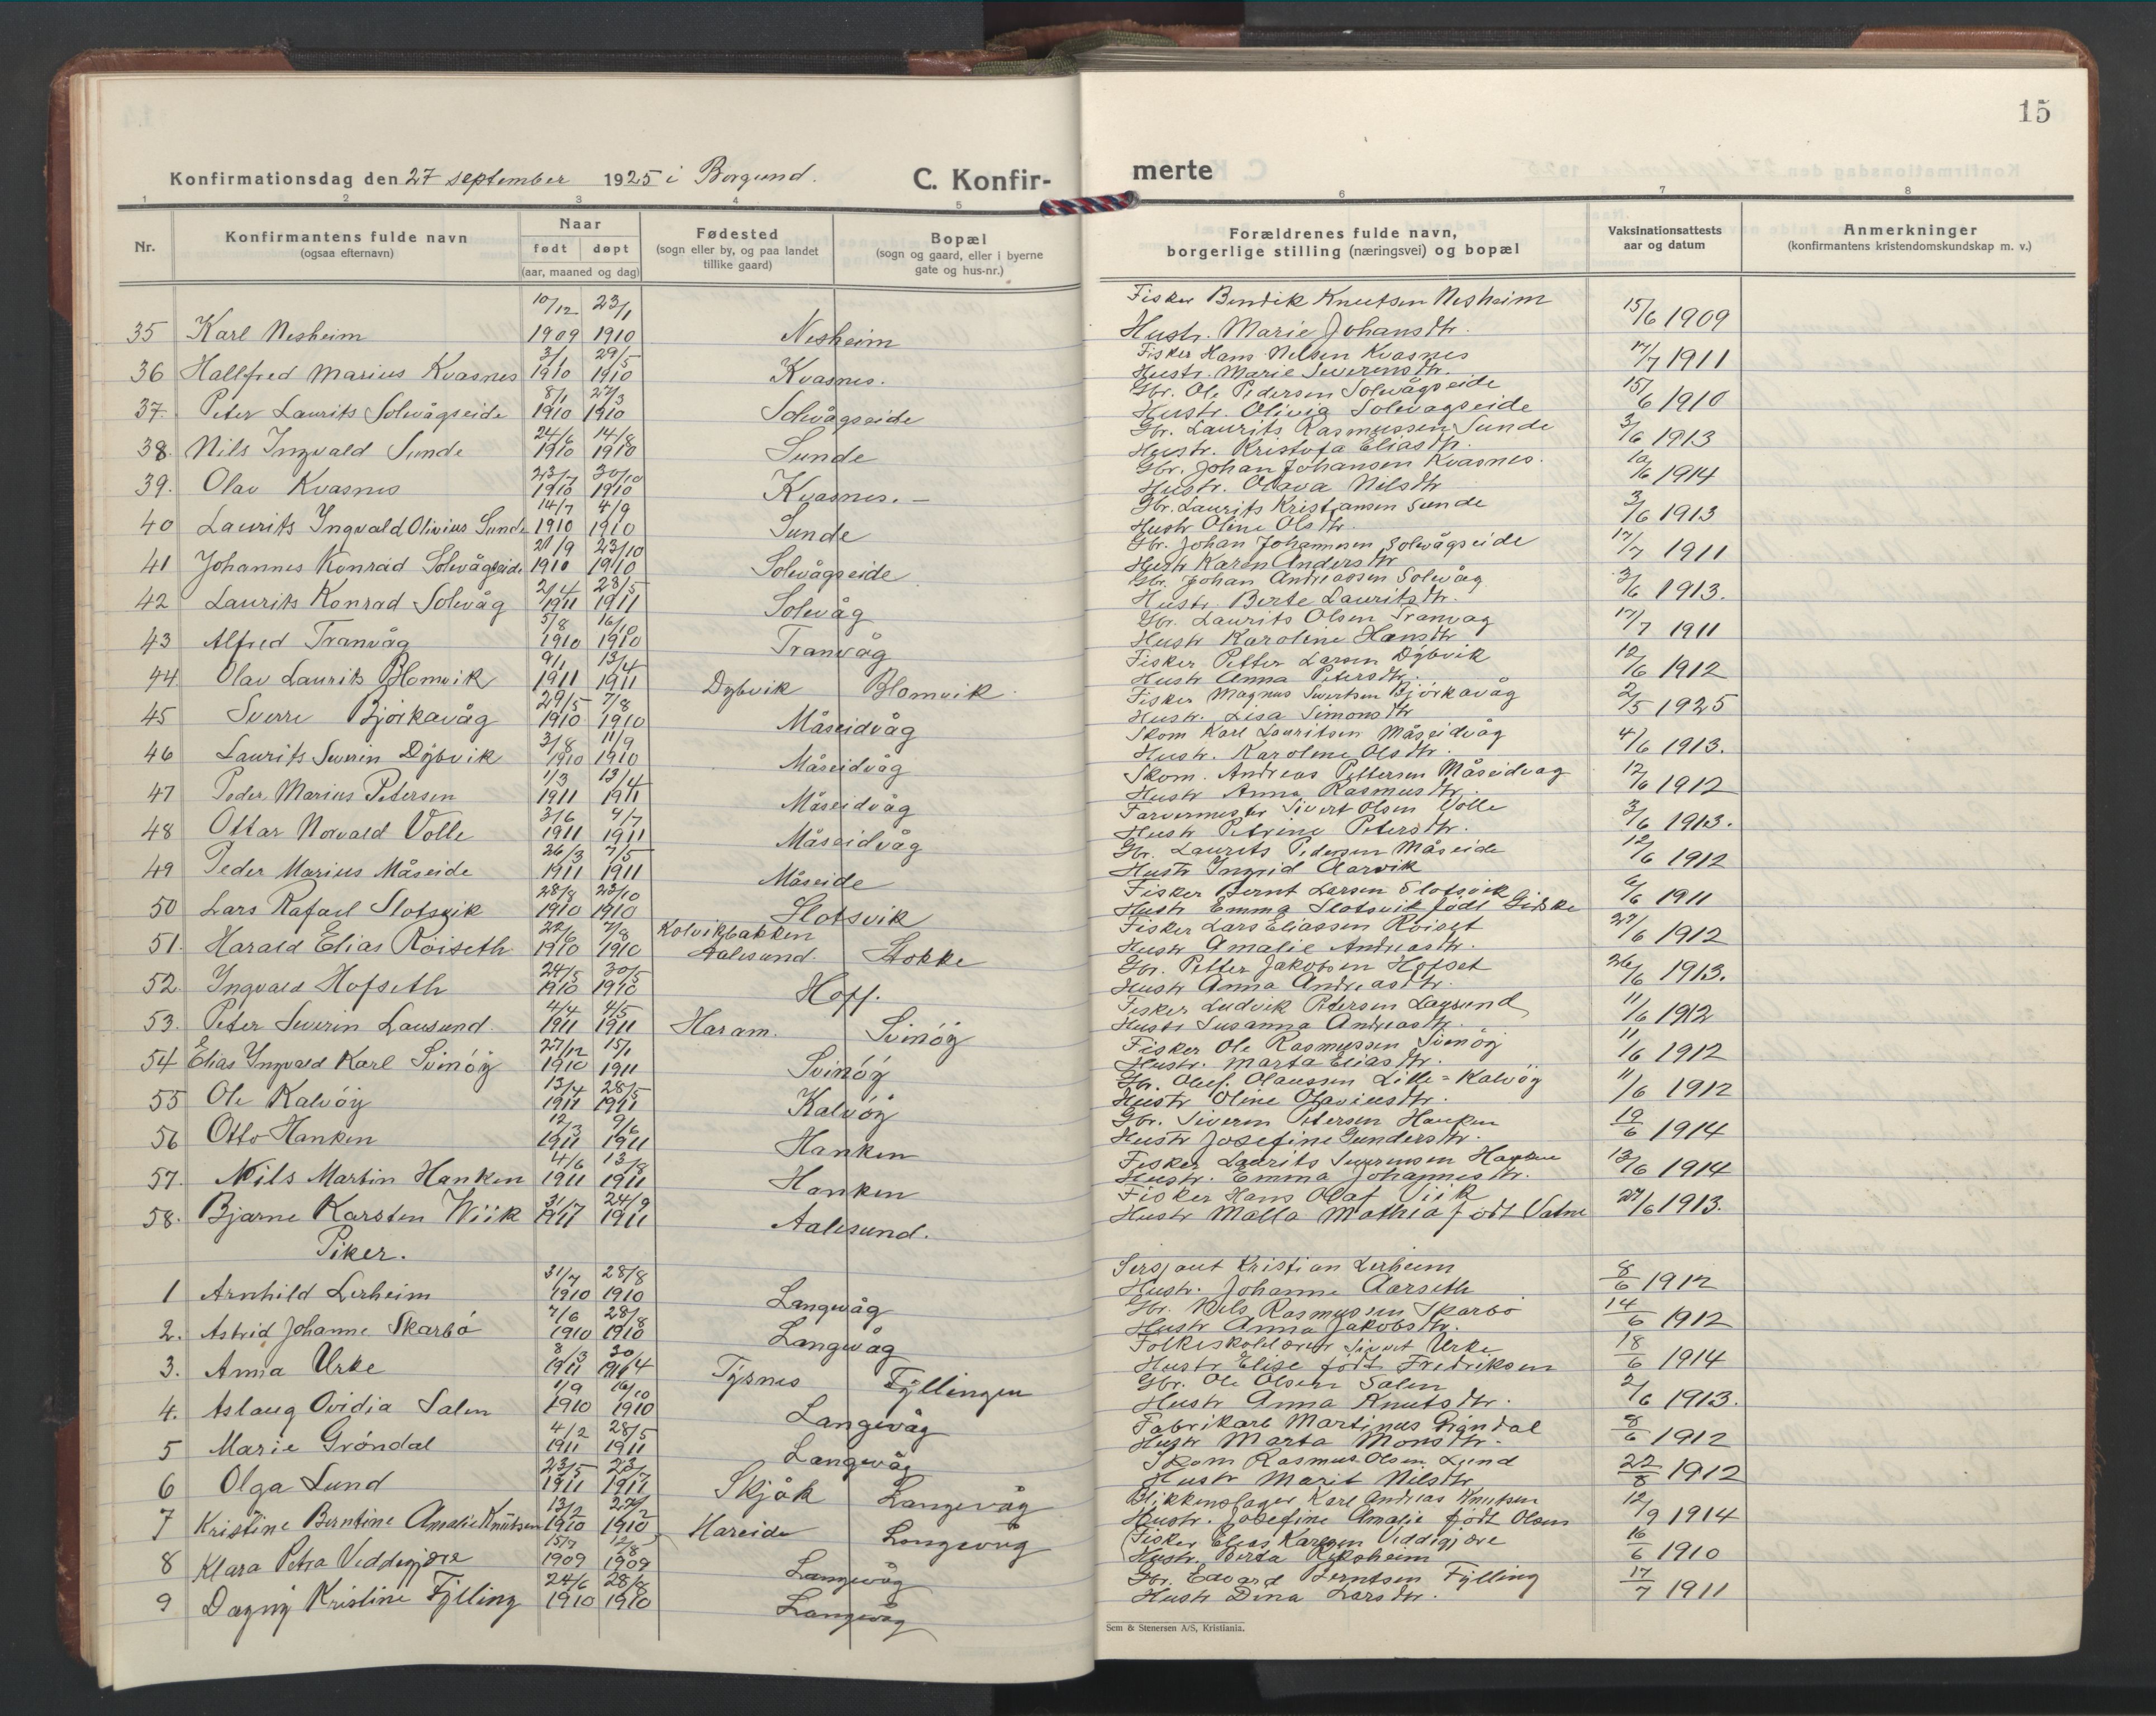 15
Konfirmationsdag den 27 september 1925 i Borgund.
C. Konfir-
merte
1 2 3 4 5 6 7 8
Nr.
Konfirmantens fulde navn
(ogsaa efternavn)
Naar
født døpt
(aar, maaned og dag)
Fødested
(sogn eller by, og paa landet
tillike gaard)
Bopæl
(sogn og gaard, eller i byerne
gate og hus-nr.)
Forældrenes fulde navn,
borgerlige stilling (næringsvei) og bopæl
Vaksinationsattests
aar og datum
Anmerkninger
(konfirmantens kristendomskundskap m. v.)
10/12 23/1 Fisker Bendik Knutsen Nesheim
35 Karl Nesheim 1909 1910 Nesheim Hustr. Marie Johansdtr. 15/6 1909
3/1 29/5 Fisker Hans Nilsen Kvasnes
36 Hallfred Marius Kvasnes 1910 1910 Kvasnes. Hustr. Marie Severinsdtr. 17/7 1911
8/1 27/3 Gbr. Ole Pedersen Solevågseide
37. Peter Laurits Solevågseide 1910 1910 Solevågseide Hustr. Olivia Solevagseide 15/6 1910
24/6 14/8 Gbr. Laurits Rasmussen Sunde
38. Nils Ingvald Sunde 1910 1910 Sunde Hustr. Kristofa Eliasdtr. 3/6 1913
23/7 30/10 Gbr. Johan Johansen Kvasnes.
39. Olav Kvasnes 1910 1910 Kvasnes. Hustr. Olava Nilsdtr 10/6 1914
14/7 4/9 Gbr. Laurits Kristiansen Sunde
40 Laurits Ingvald Olivius Sunde 1910 1910 Sunde Hustr Oline Olsdtr. 3/6 1913
21/9 23/10 Gbr. Johan Johannesen Solevågseide
41 Johannes Konrad Solevågseide 1910 1910 Solevågseide Hustr Karen Andersdtr 17/7 1911
2/4 28/5 Gbr. Johan Andreassen Solevåg
42 Laurits Konrad Solevåg 1911 1911 Solevåg Hustr. Berte Lauritsdtr. 3/6 1913.
5/8 16/10 Gbr. Laurits Olsen Tranvag
43 Alfred Tranvåg 1910 1910 Tranvåg Hustr Karoline Hansdtr 17/7 1911
9/1 13/4 Fisker Petter Larsen Dybvik
44 Olav Laurits Blomvik 1911 1911 Dybvik Blomvik Hustr Anna Petersdtr. 12/6 1912
29/5 7/8 Fisker Magnus Sivertsen Björkavåg
45 Sverre Björkavåg 1910 1910 Måseidvåg Hustr. Lisa Simonsdtr 2/5 1925
3/8 11/9 Skom Karl Lauritsen Måseidvåg
46 Laurits Severin Dybvik 1910 1910 Måseidvåg Hustr. Karoline Olsdtr. 4/6 1913.
1/3 13/4 Skom. Andreas Pettersen Måseidvag
47 Peder Marius Petersen 1911 1911 Måseidvåg Hustr Anna Rasmusdtr. 12/6 1912
3/6 9/7 Farvermester Sivert Olsen Volle
48 Ottar Norvald Volle 1911 1911 Måseidvåg Hustr Petrine Petersdtr. 3/6 1913.
26/3 7/5 Gbr. Laurits Pedersen Måseide
49 Peder Marius Måseide 1911 1911 Måseide Hustr Ingrid Aarvik 12/6 1912
28/8 23/10 Fisker Bernt Larsen Slotsvik
50 Lars Rafael Slotsvik 1910 1910 Slotsvik Hustr Emma Slotsvik födt Giske 6/6 1911
22/6 7/8 Kolvikbakken Fisker Lars Eliassen Röiset
51. Harald Elias Röiseth 1910 1910 Aalesund. Stokke Hustr Amalie Andreasdtr. 27/6 1912
24/5 30/5 Gbr. Petter Jakobsen Hofset
52 Ingvald Hofseth 1910 1910 Hoff. Hustr Anna Andreasdtr. 26/6 1913.
4/4 4/5 Fisker Ludvik Petersen Lausund
53. Peter Severin Lausund. 1911 1911 Haram. Svinöy Hustr Susanna Andreasdtr. 11/6 1912
27/12 15/1 Fisker Ole Rasmussen Svinöy
54 Elias Ingvald Karl Svinöy 1910 1911 Svinöy Hustr. Marta Eliasdtr. 11/6 1912
13/4 28/5 Gbr. Oluf. Olaussen Lille=Kalvöy
55 Ole Kalvöy 1911 1911 Kalvöy Hustr Oline Olaviusdtr. 11/6 1912
12/3 9/6 Gbr. Siverin Petersen Hanken
56 Otto Hanken 1911 1911 Hanken Hustr Josefine Gundersdtr. 19/6 1914
4/6 13/8 Fisker Laurits Severinsen Hanken
57. Nils Martin Hanken 1911 1911 Hanken Hustr. Emma Johannesdtr. 13/6 1914
31/7 24/9 Fisker Hans Olaf Viik
58. Bjarne Karsten Wiik 1911 1911 Aalesund. Hustr Malla Mathea födt Vatne 27/6 1913.
Piker.
31/7 28/8 Sersjant Kristian Lerheim
1 Arnhild Lerheim 1910 1910 Langevåg Hustr. Johanne Aarseth 8/6 1912
7/6 28/8 Gbr. Nils Rasmussen Skarbö
2. Astrid Johanne Skarbö 1910 1910 Langevåg Hustr Anna Jakobsdtr. 14/6 1912
8/3 30/4 Folkeskolelærer Sivert Urke
3. Anna Urke 1911 1911 Tysnes Fyllingen Hustr Elise födt Fredriksen 18/6 1914
1/9 16/10 Gbr. Ole Olsen Salen
4. Aslaug Ovidia Salen 1910 1910 Langevåg Hustr Anna Knutsdtr. 2/6 1913.
4/2 28/5 Fabrikarb Martinus Gröndal
5 Marie Gröndal 1911 1911 Langevåg Hustr Marta Monsdtr. 8/6 1912
23/5 23/7 Skom Rasmus Olsen Lund
6 Olga Lund 1911 1911 Skjåk Langevåg Hustr Marit Nilsdtr 22/8 1912
13/2 27/2 Blikkenslager Karl Andreas Knutsen
7 Kristine Berntine Amalie Knutsen 1910 1910 Hareide Langevåg Hustr. Josefine Amalie födt Olsen 12/9 1914
15/7 12/8 Fisker Elias Karlsen Veddigjære
8 Klara Petra Veddegjære 1909 1909 Langevåg Hustr. Berta Riksheim 16/6 1910
24/6 28/8 Gbr. Edvard Berntsen Fylling
9 Dagny Kristine Fylling 1910 1910 Langevåg Hustr Dina Larsdtr. 17/7 1911
Sem & Stenersen A/S, Kristiania.